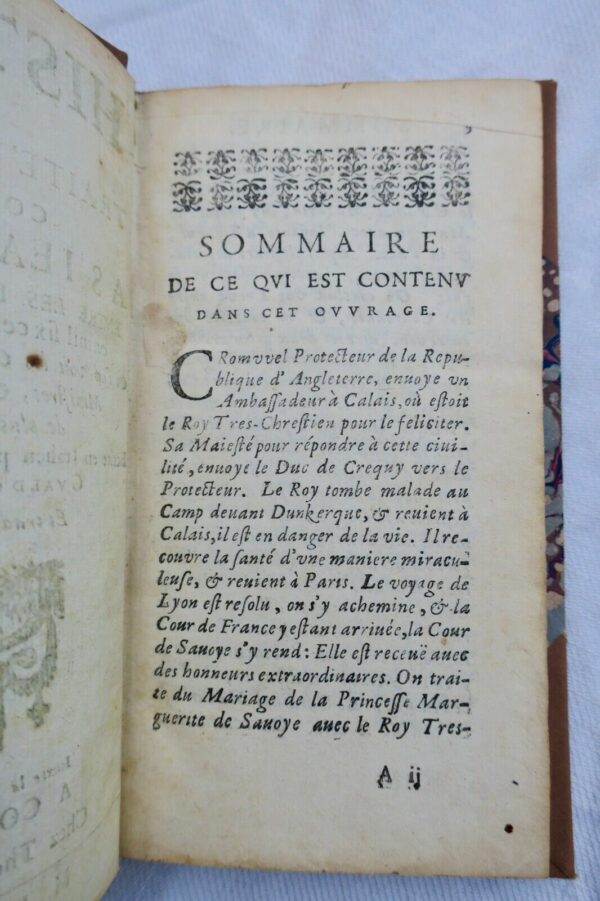 HIST
A COL
Chez The
3
SOMMAIRE
DE CE QVI EST CONTENV
DANS CET OVVRAGE.
CRomvvel Protecteur de la Repu-
blique d'Angleterre, enuoye vn
Ambaſſadeur à Calais, où eſtoit
le Roy Tres-Chreſtien pour le feliciter.
Sa Maieſté pour répondre à cette ciui-
lité, enuoye le Duc de Crequy vers le
Protecteur. Le Roy tombe malade au
Camp deuant Dunkerque, & reuient à
Calais, il eſt en danger de la vie. Il re-
couvre la ſanté d'vne maniere miracu-
leuſe, & reuient à Paris. Le voyage de
Lyon eſt reſolu, on s'y achemine, & la
Cour de France y eſtant arriuée, la Cour
de Sauoye s'y rend: Elle eſt receuë auec
des honneurs extraordinaires. On trai-
te du Mariage de la Princeſſe Mar-
guerite de Sauoye auec le Roy Tres-
A ij